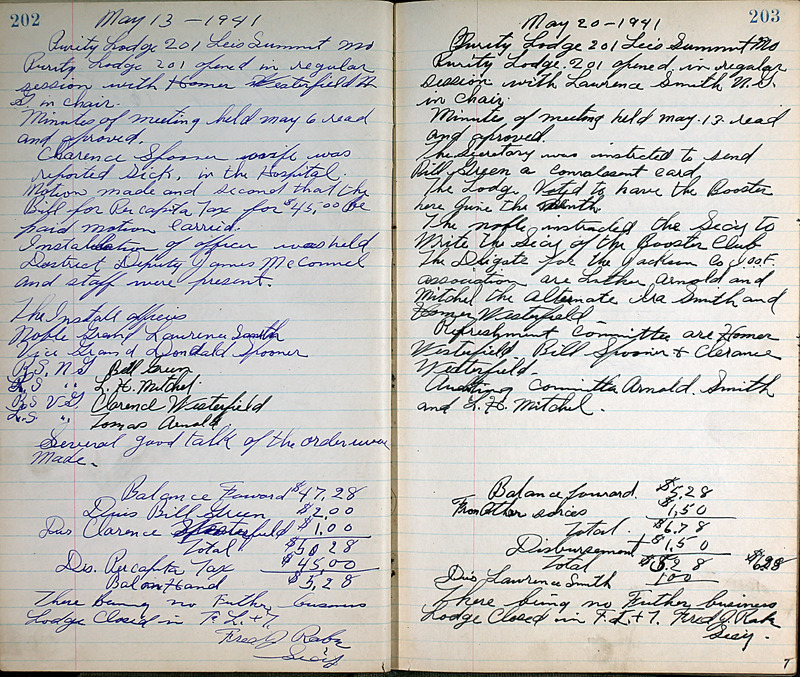 202
May 13 - 1941
Purity Lodge 201 Leis Summit Mo
Purity Lodge 201 opened in regular
session with Homer Westerfield N
G in chair.
Minutes of meeting held may 6 read
and aproved.
Clarence Spooner wife was
reported Sick, in the Hospital.
Motion made and second that the
Bill for Percapita Tax for $45,00 Be
paid motion carried.
Installation of officer was held
District Deputy James McConnel
and staff were present.
The Install officers
Noble Grand Lawrence Smith
Vice Grand Donald Spooner
R.S. N.G Bill Green
L.S " L. H. Mitchel
R.S V.G. Clarence Westerfield
L.S " Lomas Arnold
Several good talk of the order was
Made.
Balance Foward $47,28
Dues Bill Green $2,00
Dus Clarence Westerfield $1,00
Total $50 28
Dis. Percapita Tax $45,00
Bal on Hand $5,28
There Being no Futher busness
Lodge Closed in F. L. + T.
Fred J Rabe
Sec'y
203
May 20 - 1941
Purity Lodge 201 Leis Summit Mo
Purity Lodge 201 opened in regular
session with Lawrence Smith N.G.
in chair.
Minutes of meeting held may 13 read
and aproved.
The Secretary was instructed to send
Bill Green a convalesent card
The Lodge Voted to have the Booster
here June the
The noble instructed the Sec'y to
Write the Sec'y of the Booster Club
The Deligate for the Jackson Co I.O.O.F.
association are Luther Arnold and
Mitchel the alternate Ira Smith and
Homer Westerfield
Refreshment Committee are Homer
Westerfield Bill Spooner + Clerance
Westerfield.
Auditing Committee Arnold. Smith
and L. H. Mitchel.
Balance forward. $5,28
From other sorces 1,50
Total. $6.78
Disbursement $1,50
Total $5 28
Dis Lawrence Smith 1 00
There being no Futher business
Lodge Closed in F. L. + T. Fred J. Rabe
Sec'y.